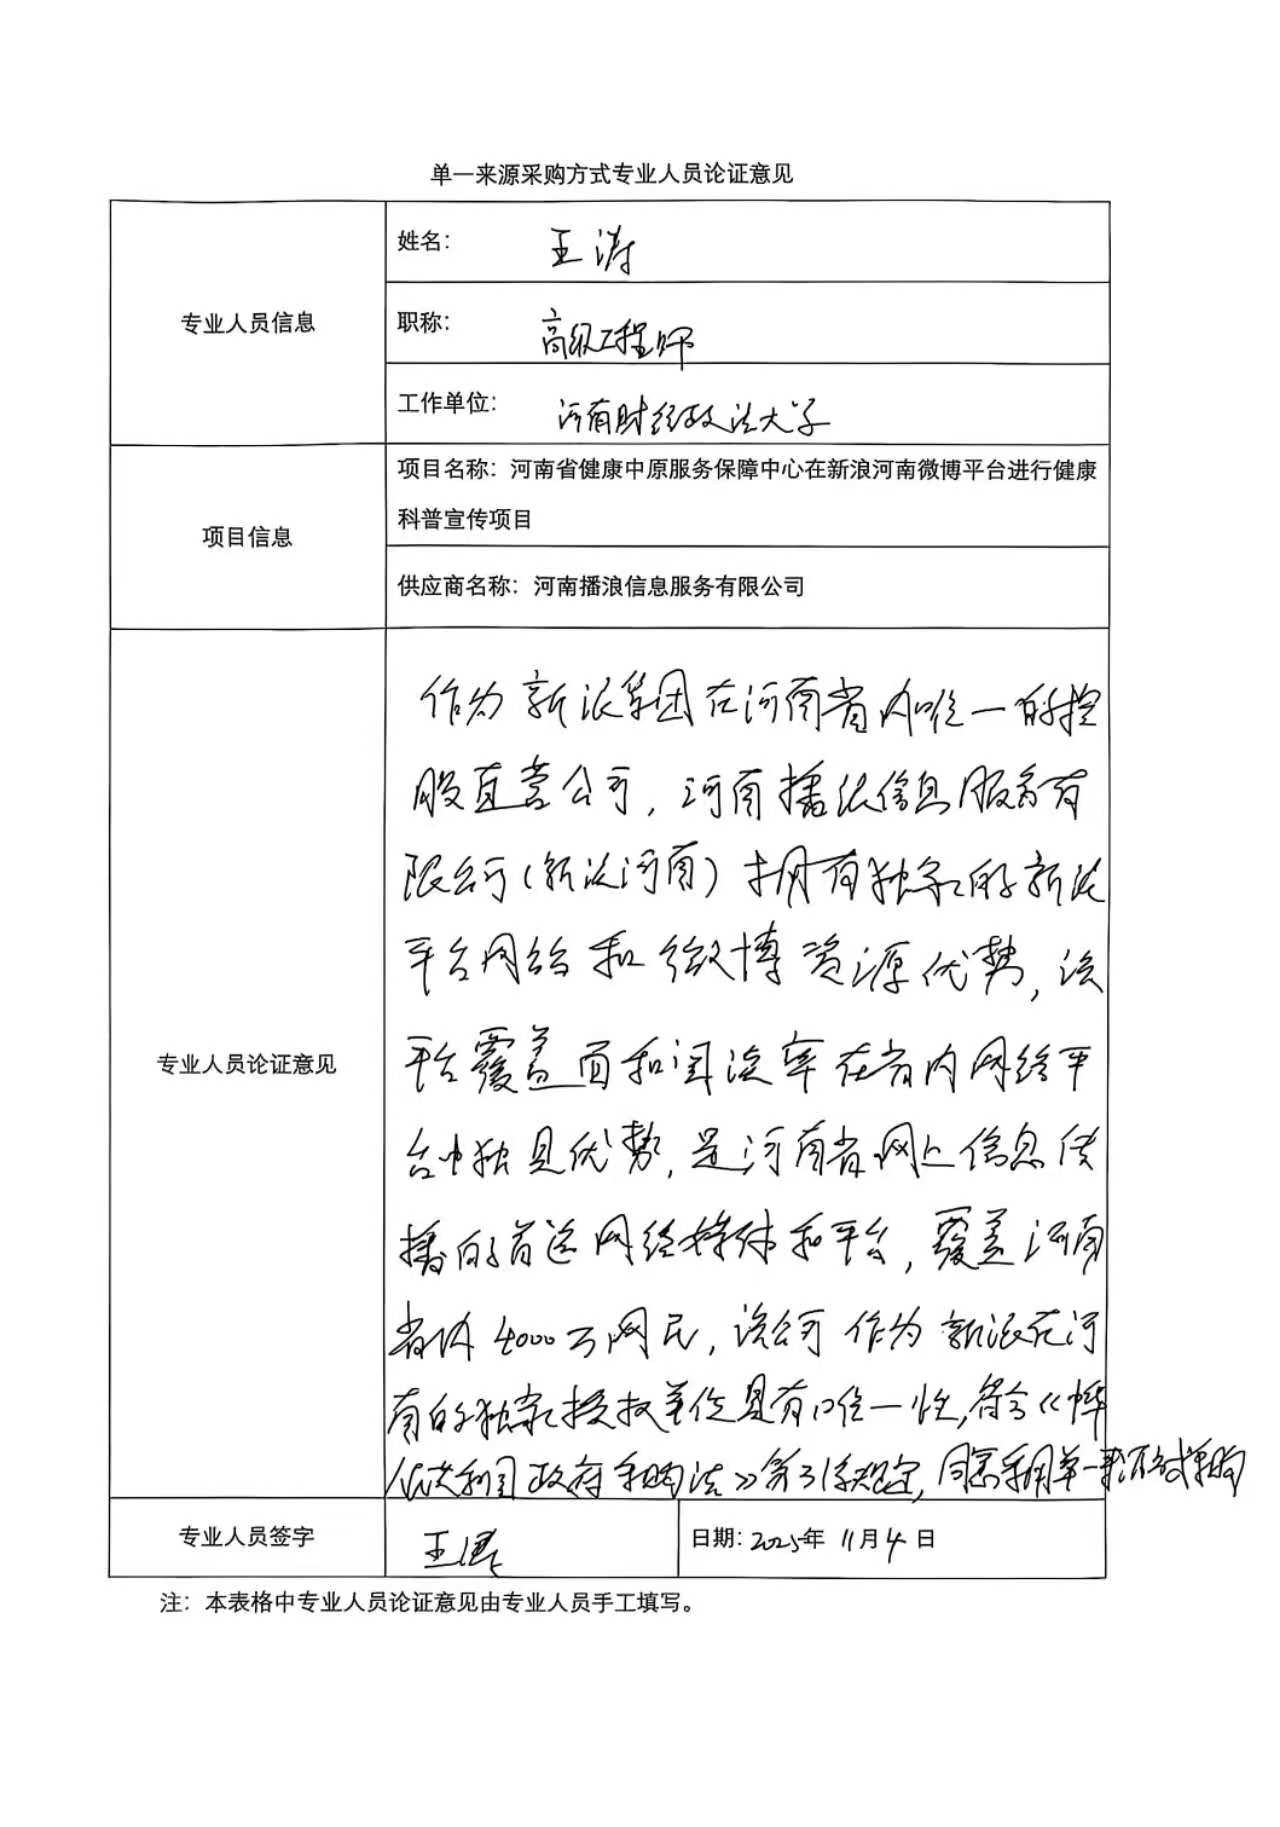 单一来源采购方式专业人员论证意见
专业人员信息
姓名: 王涛
职称: 高级工程师
工作单位: 河南财经政法大学
项目信息
项目名称: 河南省健康中原服务保障中心在新浪河南微博平台进行健康
科普宣传项目
供应商名称: 河南播浪信息服务有限公司
专业人员论证意见
作为新浪集团在河南省内唯一的控
股直营公司, 河南播浪信息服务有
限公司(新浪河南) 拥有独家的新浪
平台网络和微博资源优势, 该
平台覆盖面和阅读率在省内网络平
台中独具优势, 是河南省网上信息传
播的首选网络媒体和平台, 覆盖河南
省内4000万网民, 该公司作为新浪在河
南的独家授权单位具有唯一性, 符合《中华
人民共和国政府采购法》第31条规定, 同意采用单一来源方式采购
专业人员签字
王涛
日期: 2025年 11月 4日
注: 本表格中专业人员论证意见由专业人员手工填写。